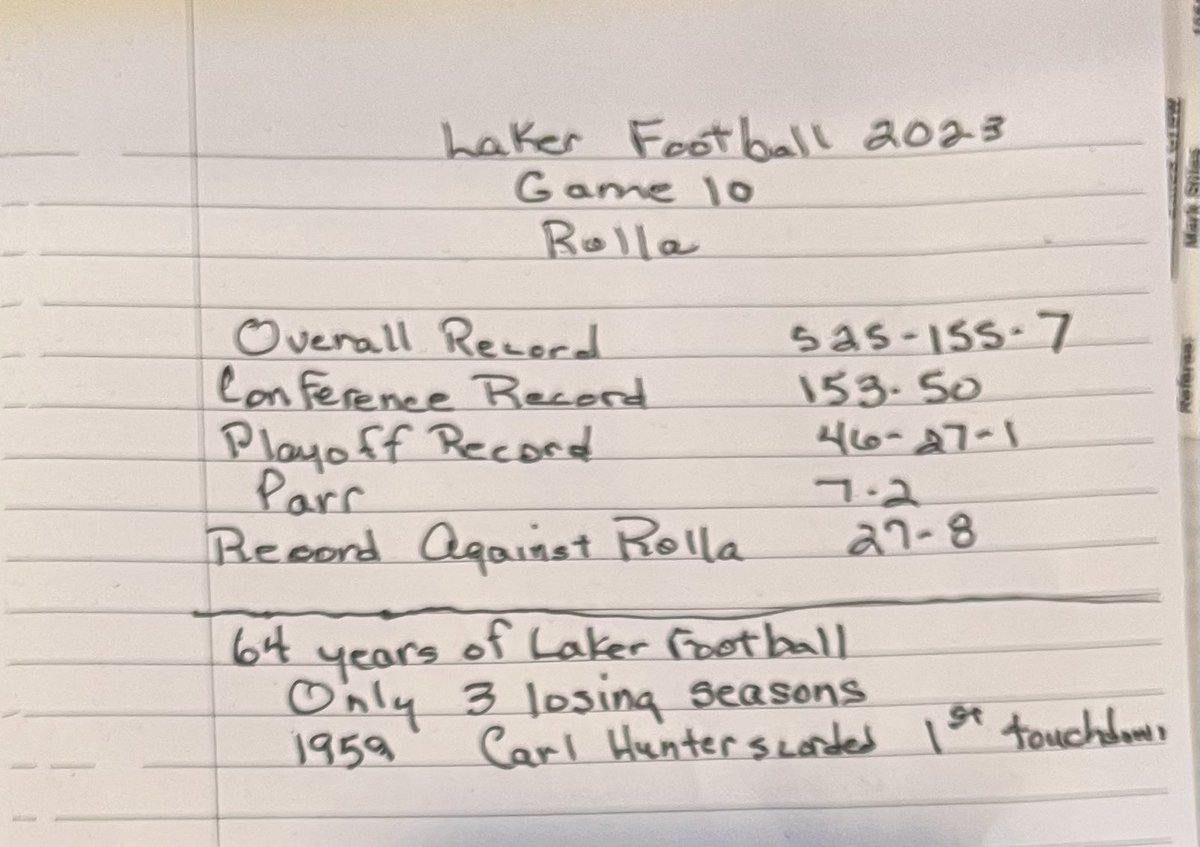 Laker Football 2023
Game 10
Rolla
Overall Record 525-155-7
Conference Record 153-50
Playoff Record 46-27-1
Parr 7-2
Record Against Rolla 27-8
64 years of Laker Football
Only 3 losing seasons
1959 Carl Hunter scorded 1st touchdown
Mark Stiles
Referees: